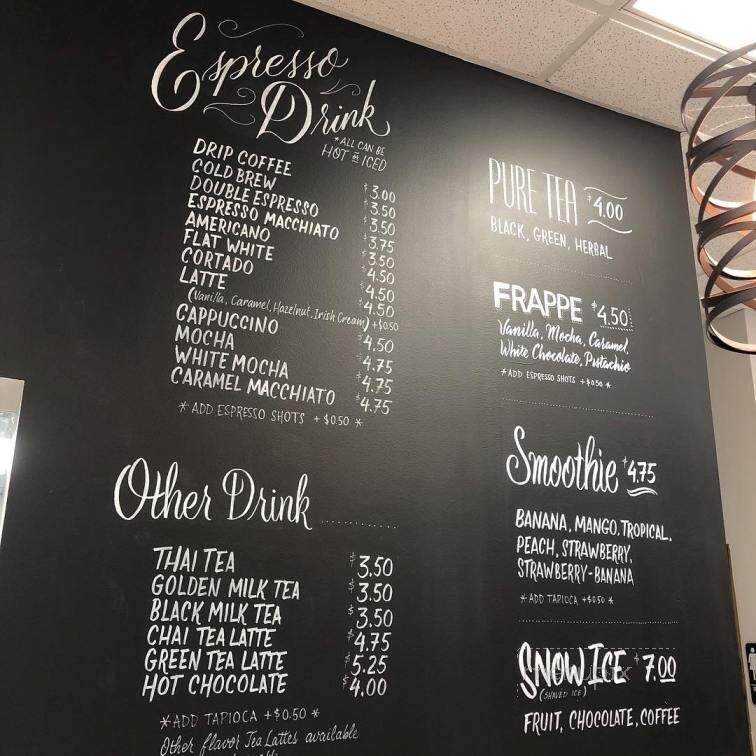 Espresso
Drink
*ALL CAN BE
HOT or ICED
DRIP COFFEE $3.00
COLD BREW $3.50
DOUBLE ESPRESSO $3.50
ESPRESSO MACCHIATO $3.75
AMERICANO $3.50
FLAT WHITE $4.50
CORTADO $4.50
LATTE $4.50
(Vanilla, Caramel, Hazelnut, Irish Cream) +$0.50
CAPPUCCINO $4.50
MOCHA $4.75
WHITE MOCHA $4.75
CARAMEL MACCHIATO $4.75
* ADD ESPRESSO SHOTS +$0.50 *
Other Drink
THAI TEA $3.50
GOLDEN MILK TEA $3.50
BLACK MILK TEA $3.50
CHAI TEA LATTE $4.75
GREEN TEA LATTE $5.25
HOT CHOCOLATE $4.00
*ADD TAPIOCA +$0.50 *
Other flavor Tea Lattes available
PURE TEA $4.00
BLACK, GREEN, HERBAL
FRAPPE $4.50
Vanilla, Mocha, Caramel,
White Chocolate, Pistachio
*ADD ESPRESSO SHOTS +$0.50 *
Smoothie $4.75
BANANA, MANGO, TROPICAL,
PEACH, STRAWBERRY,
STRAWBERRY-BANANA
*ADD TAPIOCA +$0.50 *
SNOW ICE $7.00
(SHAVED ICE)
FRUIT, CHOCOLATE, COFFEE